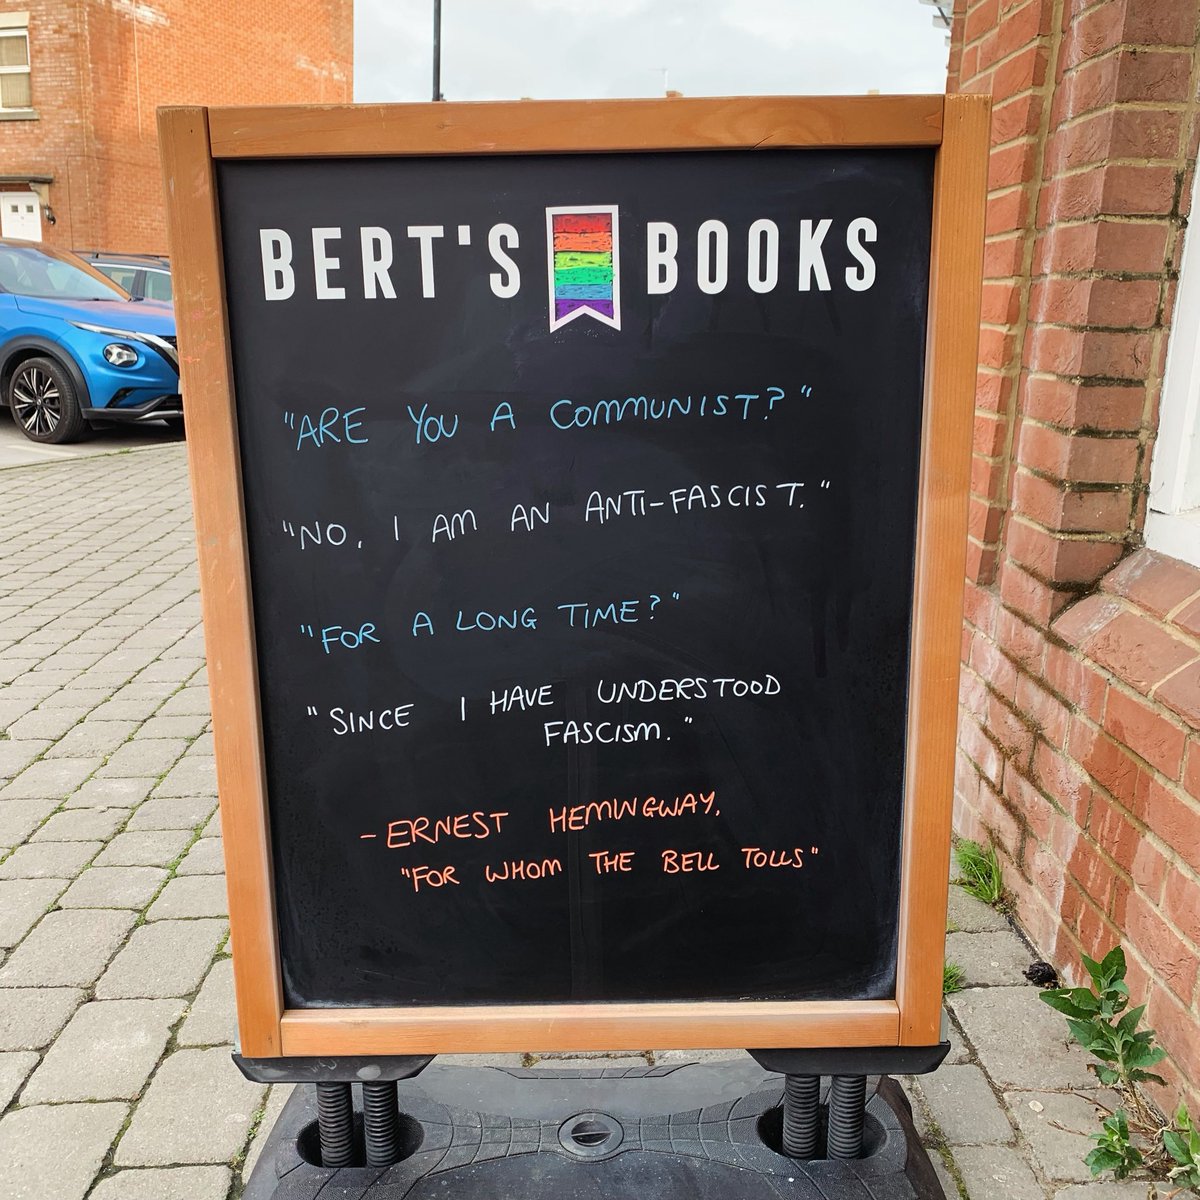 BERT'S BOOKS
"ARE YOU A COMMUNIST?"
"NO, I AM AN ANTI-FASCIST."
"FOR A LONG TIME?"
"SINCE I HAVE UNDERSTOOD
FASCISM."
- ERNEST HEMINGWAY,
"FOR WHOM THE BELL TOLLS"